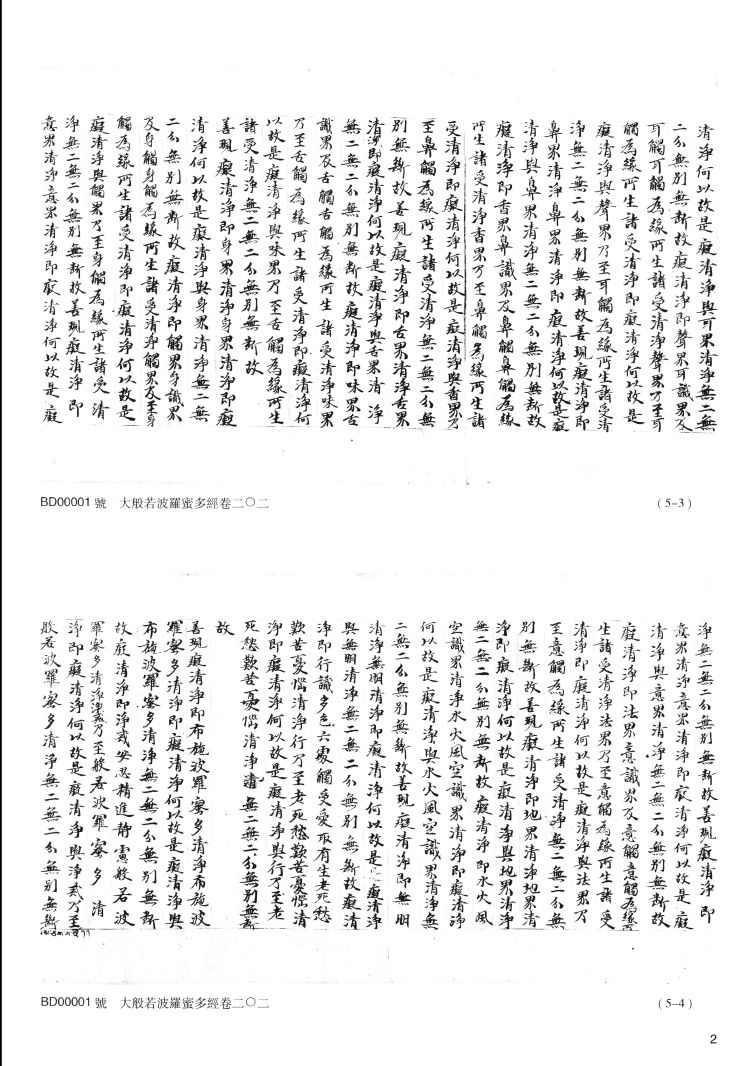 清淨何以故是癡清淨與耳界清淨無二無
二分無別無斷故癡清淨即聲界耳識界及
耳觸耳觸為緣所生諸受清淨聲界乃至耳
觸為緣所生諸受清淨即癡清淨何以故是
癡清淨與聲界乃至耳觸為緣所生諸受清
淨無二無二分無別無斷故善現癡清淨即
鼻界清淨鼻界清淨即癡清淨何以故是癡
清淨與鼻界清淨無二無二分無別無斷故
癡清淨即香界鼻識界及鼻觸鼻觸為緣
所生諸受清淨香界乃至鼻觸為緣所生諸
受清淨即癡清淨何以故是癡清淨與香界乃
至鼻觸為緣所生諸受清淨無二無二分無
別無斷故善現癡清淨即舌界清淨舌界
清淨即癡清淨何以故是癡清淨與舌界清淨
無二無二分無別無斷故癡清淨即味界舌
識界及舌觸舌觸為緣所生諸受清淨味界
乃至舌觸為緣所生諸受清淨即癡清淨何
以故是癡清淨與味界乃至舌觸為緣所生
諸受清淨無二無二分無別無斷故
善現癡清淨即身界清淨身界清淨即癡
清淨何以故是癡清淨與身界清淨無二無
二分無別無斷故癡清淨即觸界身識界
及身觸身觸為緣所生諸受清淨觸界乃至身
觸為緣所生諸受清淨即癡清淨何以故是
癡清淨與觸界乃至身觸為緣所生諸受清
淨無二無二分無別無斷故善現癡清淨即
意界清淨意界清淨即癡清淨何以故是癡
BD00001號 大般若波羅蜜多經卷二〇二
(5-3)
淨無二無二分無別無斷故善現癡清淨即
意界清淨意界清淨即癡清淨何以故是癡
清淨與意界清淨無二無二分無別無斷故
癡清淨即法界意識界及意觸意觸為緣所
生諸受清淨法界乃至意觸為緣所生諸受
清淨即癡清淨何以故是癡清淨與法界乃
至意觸為緣所生諸受清淨無二無二分無
別無斷故善現癡清淨即地界清淨地界清
淨即癡清淨何以故是癡清淨與地界清淨
無二無二分無別無斷故癡清淨即水火風
空識界清淨水火風空識界清淨即癡清淨
何以故是癡清淨與水火風空識界清淨無
二無二分無別無斷故善現癡清淨即無明
清淨無明清淨即癡清淨何以故是癡清淨
與無明清淨無二無二分無別無斷故癡清
淨即行識名色六處觸受愛取有生老死愁
歎苦憂惱清淨行乃至老死愁歎苦憂惱清
淨即癡清淨何以故是癡清淨與行乃至老
死愁歎苦憂惱清淨無二無二分無別無斷
故
善現癡清淨即布施波羅蜜多清淨布施波
羅蜜多清淨即癡清淨何以故是癡清淨與
布施波羅蜜多清淨無二無二分無別無斷
故癡清淨即淨戒安忍精進靜慮般若波
羅蜜多清淨淨戒乃至般若波羅蜜多清
淨即癡清淨何以故是癡清淨與淨戒乃至
般若波羅蜜多清淨無二無二分無別無斷
BD00001號 大般若波羅蜜多經卷二〇二
(5-4)
2